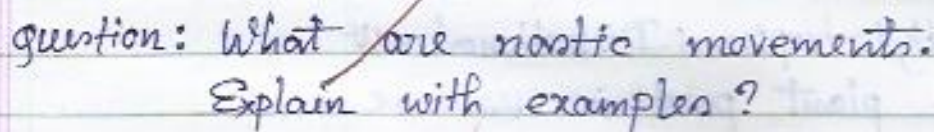 question: What are nastic movements.
Explain with examples?